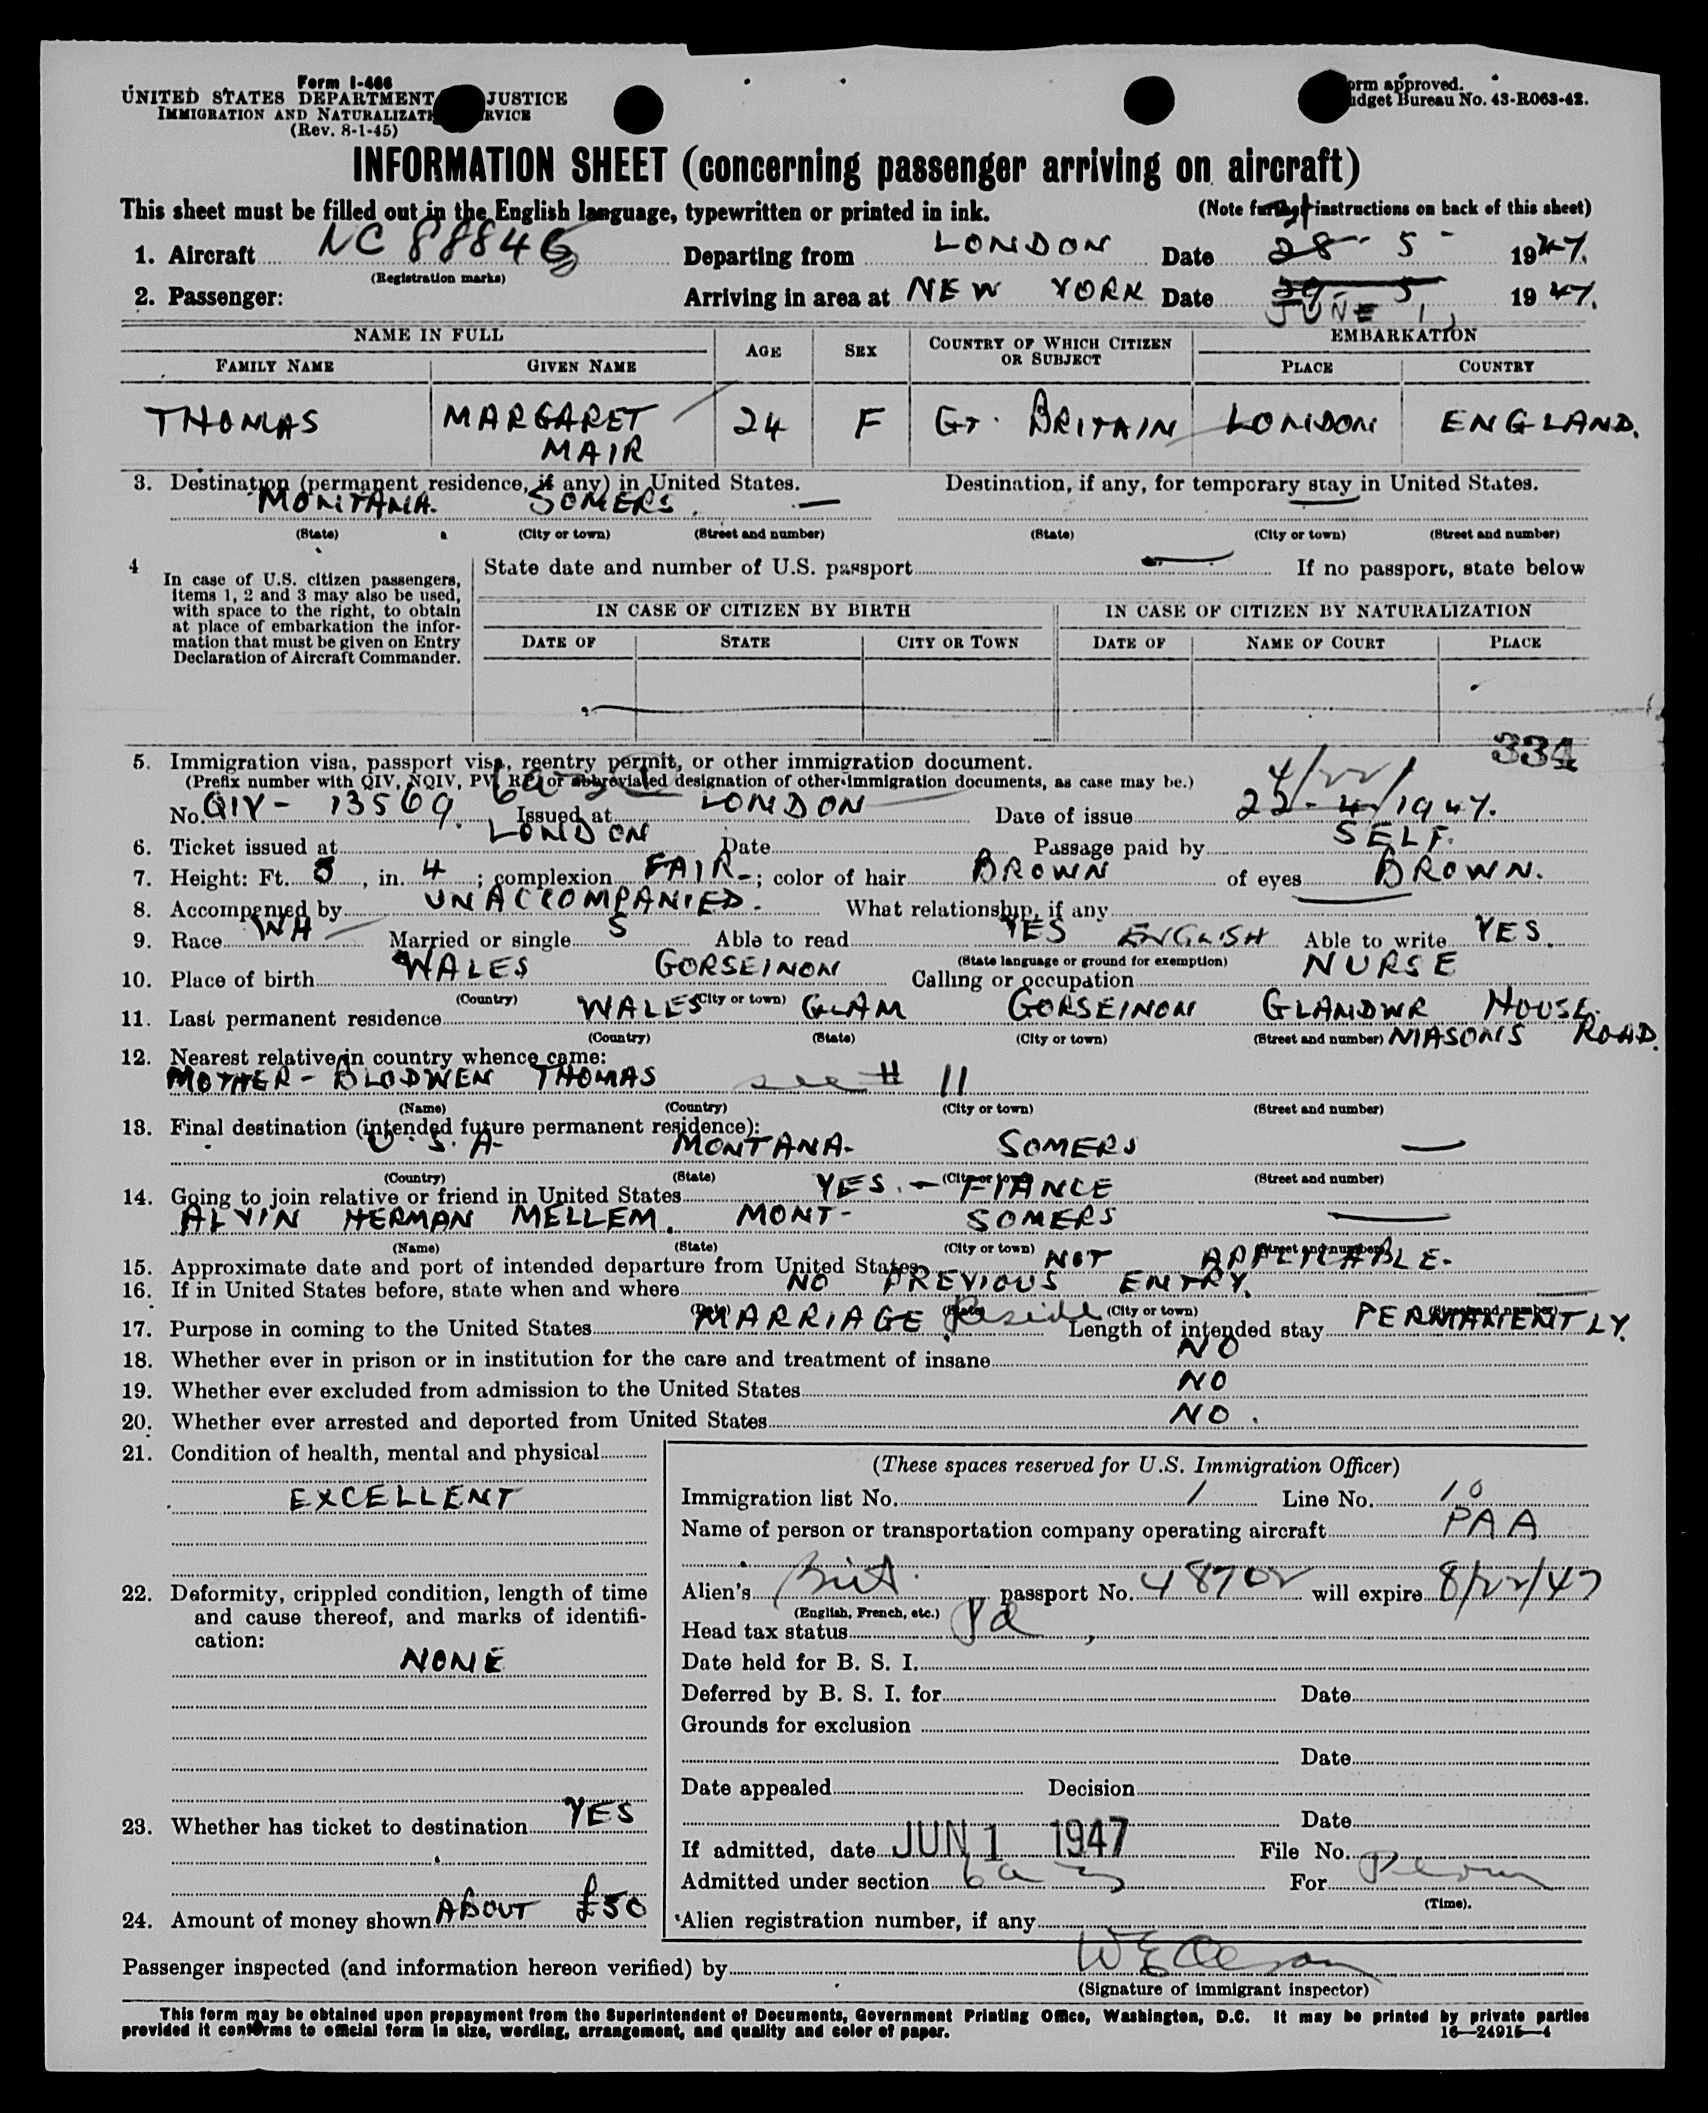 Form I-466
UNITED STATES DEPARTMENT JUSTICE
IMMIGRATION AND NATURALIZAT RVICE
(Rev. 8-1-45)
orm approved.
dget Bureau No. 43-R063-42.
INFORMATION SHEET (concerning passenger arriving on aircraft)
This sheet must be filled out in the English language, typewritten or printed in ink. (Note further instructions on back of this sheet)
1. Aircraft NC 88846 Departing from LONDON Date 28 - 5 - 1947.
(Registration marks)
2. Passenger: Arriving in area at NEW YORK Date 29 - 5, 1947.
JUNE 1,
NAME IN FULL AGE SEX COUNTRY OF WHICH CITIZEN OR SUBJECT EMBARKATION
FAMILY NAME GIVEN NAME PLACE COUNTRY
THOMAS MARGARET MAIR 24 F GT. BRITAIN LONDON ENGLAND.
3. Destination (permanent residence, if any) in United States. Destination, if any, for temporary stay in United States.
MONTANA. SOMERS. —
(State) (City or town) (Street and number) (State) (City or town) (Street and number)
4 In case of U.S. citizen passengers, items 1, 2 and 3 may also be used, with space to the right, to obtain at place of embarkation the information that must be given on Entry Declaration of Aircraft Commander.
State date and number of U.S. passport — If no passport, state below
IN CASE OF CITIZEN BY BIRTH IN CASE OF CITIZEN BY NATURALIZATION
DATE OF STATE CITY OR TOWN DATE OF NAME OF COURT PLACE
334
5. Immigration visa, passport visa, reentry permit, or other immigration document.
(Prefix number with QIV, NQIV, PV, RP, or abbreviated designation of other immigration documents, as case may be.) 4/22/
No. QIV - 13569. Issued at LONDON Date of issue 22 - 4/1947.
6. Ticket issued at LONDON Date Passage paid by SELF.
7. Height: Ft. 5, in. 4; complexion FAIR -; color of hair BROWN of eyes BROWN.
8. Accompanied by UNACCOMPANIED. What relationship, if any —
9. Race WH Married or single S Able to read YES ENGLISH Able to write YES.
(State language or ground for exemption)
10. Place of birth WALES GORSEINON Calling or occupation NURSE
(Country) (City or town)
11. Last permanent residence WALES GLAM GORSEINON GLANDWR HOUSE.
(Country) (State) (City or town) (Street and number) MASONS ROAD.
12. Nearest relative in country whence came:
MOTHER - BLODWEN THOMAS see # 11
(Name) (Country) (City or town) (Street and number)
13. Final destination (intended future permanent residence):
U.S.A. MONTANA - SOMERS —
(Country) (State) (City or town) (Street and number)
14. Going to join relative or friend in United States YES. - FIANCE
ALVIN HERMAN MELLEM. MONT - SOMERS —
(Name) (State) (City or town) (Street and number)
15. Approximate date and port of intended departure from United States NOT APPLICABLE.
16. If in United States before, state when and where NO PREVIOUS ENTRY.
(Date) (State) (City or town) (Street and number)
17. Purpose in coming to the United States MARRIAGE Reside Length of intended stay PERMANENTLY.
18. Whether ever in prison or in institution for the care and treatment of insane NO
19. Whether ever excluded from admission to the United States NO
20. Whether ever arrested and deported from United States NO.
21. Condition of health, mental and physical
EXCELLENT
22. Deformity, crippled condition, length of time
and cause thereof, and marks of identifi-
cation:
NONE
23. Whether has ticket to destination YES
24. Amount of money shown ABOUT £50
(These spaces reserved for U.S. Immigration Officer)
Immigration list No. 1 Line No. 10
Name of person or transportation company operating aircraft PAA
Alien's Brit. passport No. 48702 will expire 8/22/47
(English, French, etc.)
Head tax status Pd
Date held for B. S. I.
Deferred by B. S. I. for Date
Grounds for exclusion
Date
Date appealed Decision
Date
If admitted, date JUN 1 1947 File No.
Admitted under section 6a 3 For Perm
(Time).
Alien registration number, if any
Passenger inspected (and information hereon verified) by
(Signature of immigrant inspector)
This form may be obtained upon prepayment from the Superintendent of Documents, Government Printing Office, Washington, D.C. It may be printed by private parties
provided it conforms to official form in size, wording, arrangement, and quality and color of paper. 16—24915—4